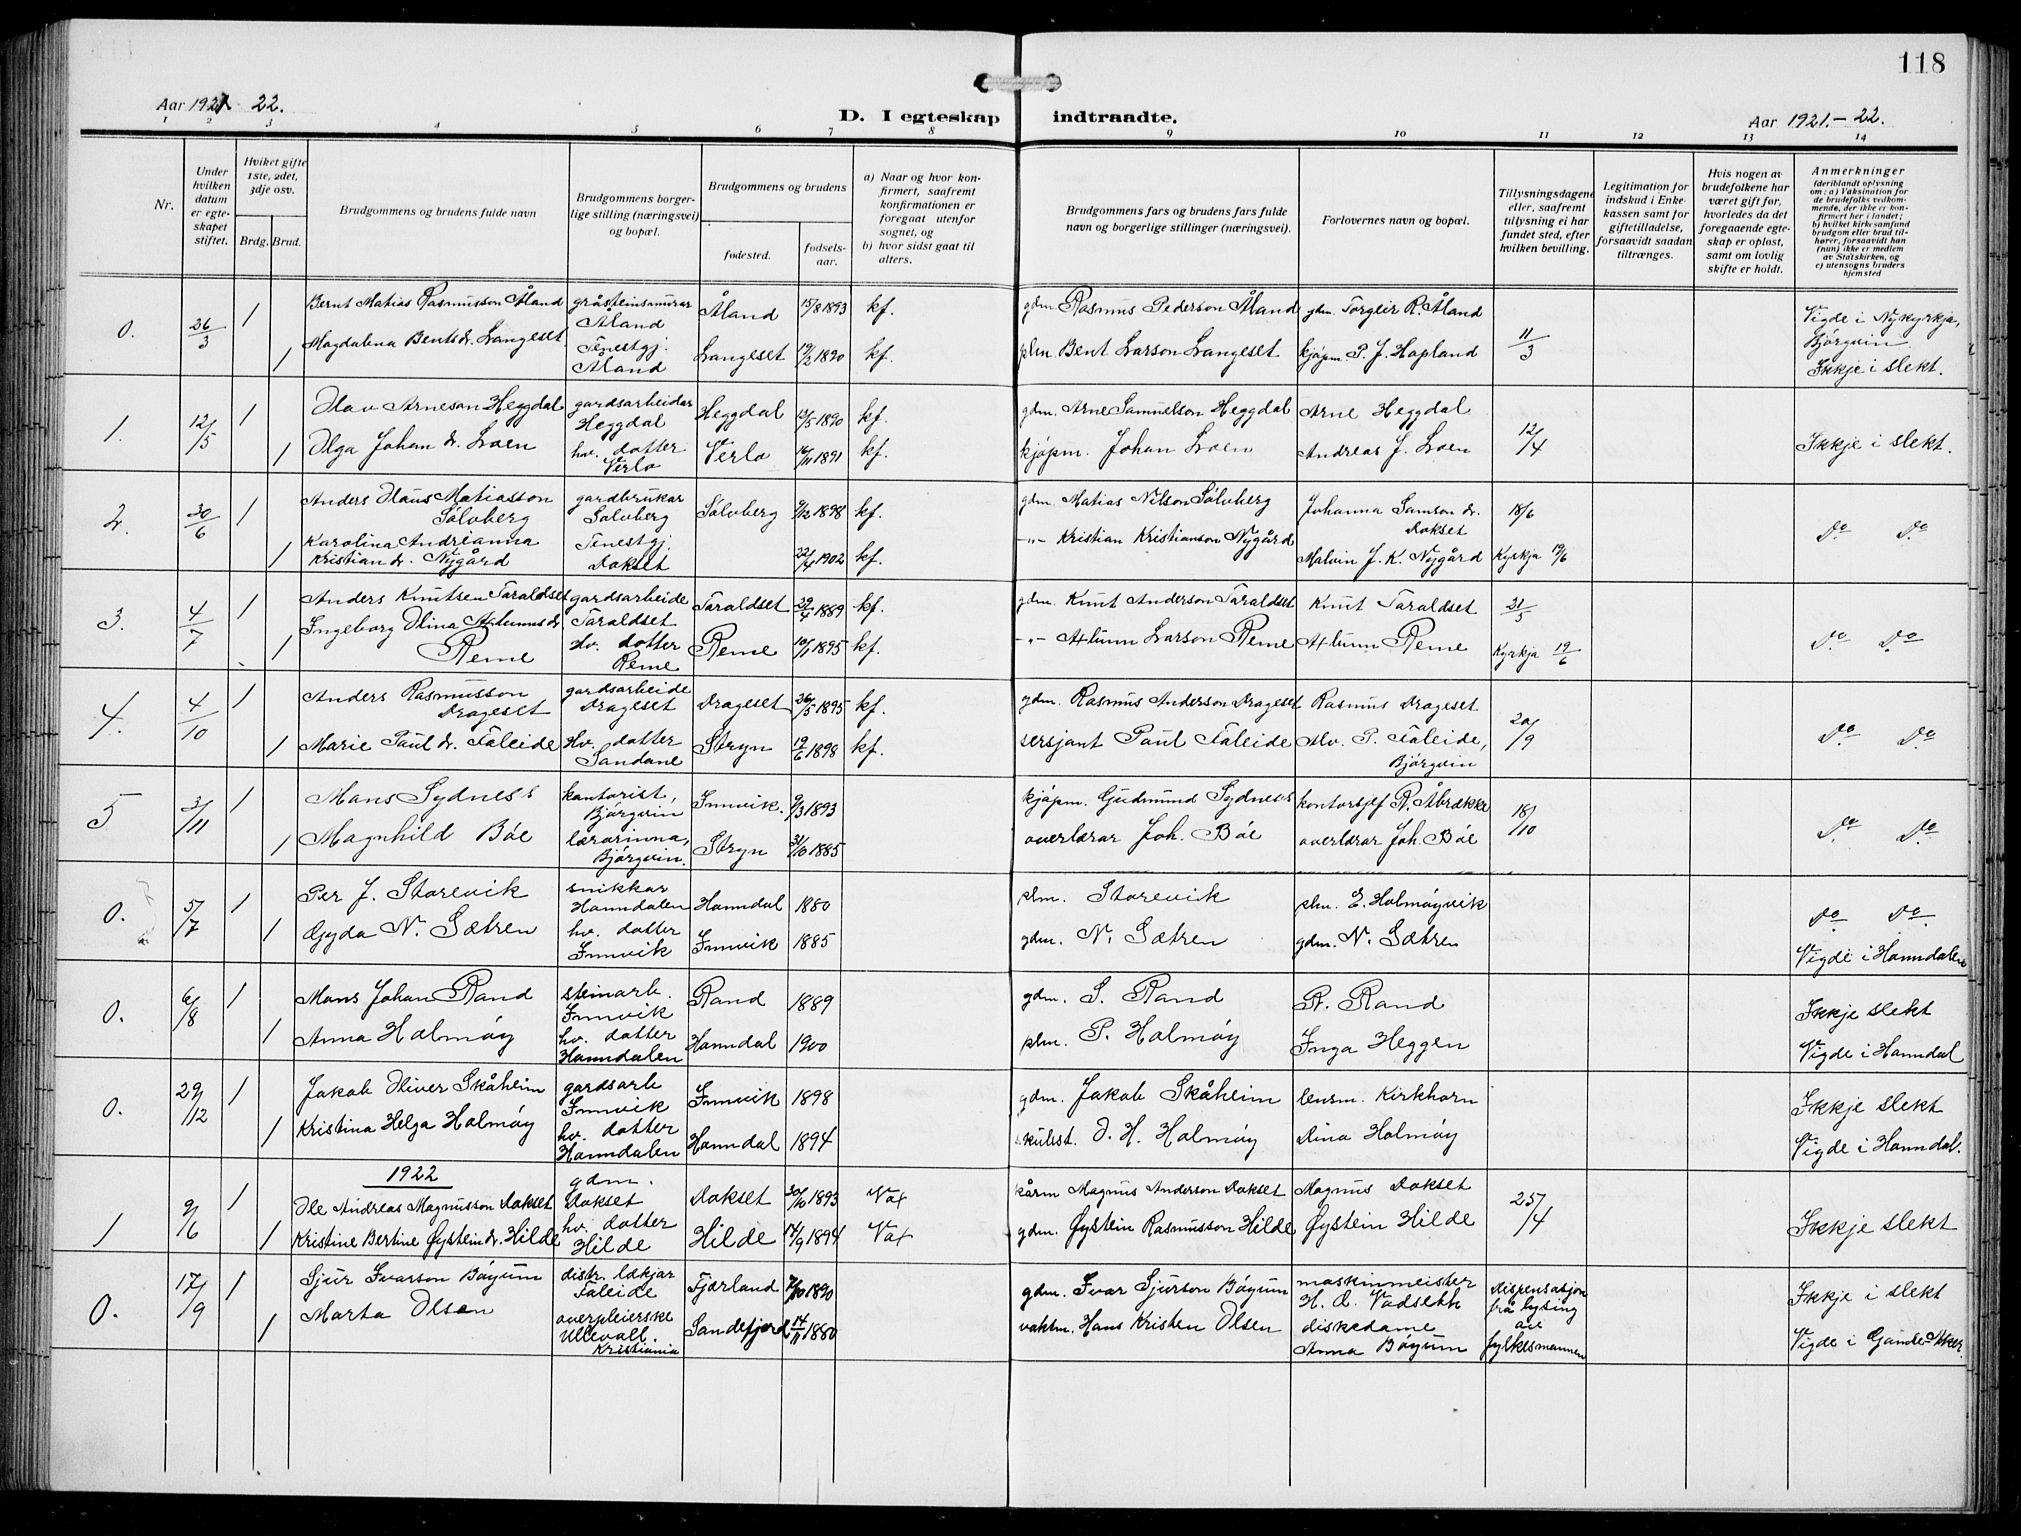 118
Aar 1921 22.
D. I egteskap indtraadte.
Aar 1921.-22.
1 2 3 4 5 6 7 8 9 10 11 12 13 14
Nr.
Under hvilken datum er egteskapet stiftet.
Hvilket gifte 1ste, 2det, 3dje osv.
Brdg. Brud.
Brudgommens og brudens fulde navn
Brudgommens borgerlige stilling (næringsvei) og bopæl.
Brudgommens og brudens
fødested.
fødselsaar.
a) Naar og hvor konfirmert, saafremt konfirmationen er foregaat utenfor sognet, og
b) hvor sidst gaat til alters.
Brudgommens fars og brudens fars fulde navn og borgerlige stillinger (næringsvei).
Forlovernes navn og bopæl.
Tillysningsdagene eller, saafremt tillysning ei har fundet sted, efter hvilken bevilling.
Legitimation for indskud i Enkekassen samt for giftetilladelse, forsaavidt saadan tiltrænges.
Hvis nogen av brudefolkene har været gift før, hvorledes da det foregaaende egteskap er opløst, samt om lovlig skifte er holdt.
Anmerkninger
(deriblandt oplysning om: a) Vaksination for de brudefolks vedkommende, der ikke er konfirmert her i landet; b) hvilket kirkesamfund brudgom eller brud tilhører, forsaavidt han (hun) ikke er medlem av Statskirken, og c) utensogns bruders hjemsted
0. 26/3 1 Bernt Matias Rasmusson Åland gråsteinsmurar Åland Åland 15/8 1893 kf. gdm. Rasmus Pederson Åland gdm. Torgleir R. Åland 11/3 Vigde i Nykyrkja, Bjørgvin
1 Magdalena Bentsdr. Langeset Tenestgj. Åland Langeset 19/2 1890 kf. plm. Bent Larson Langeset kjøpm. P. J. Hopland Ikkje i slekt.
1. 12/5 1 Olav Arneson Heggdal gardsarbeidar Heggdal Heggdal 13/5 1890 kf. gdm. Arne Samuelson Heggdal Arne Heggdal 12/4
1 Olga Johan dr. Loen hv. dotter Verlo Verlo 16/11 1891 kf. kjøpm. Johan Loen Andreas J. Loen Ikkje i slekt.
2. 30/6 1 Anders Olaus Matiasson Sølvberg gardbrukar Sølvberg Sølvberg 9/12 1898 kf. gdm. Matias Nilson Sølvberg Johanna Samson dr. Dokset 18/6
1 Karolina Andrianna Kristian dr. Nygård Tenestgj. Dokset 22/4 1902 kf. -"- Kristian Kristianson Nygård Malvin J. K. Nygård Kyrkja 19/6 Do Do
3. 4/7 1 Anders Knutsen Taraldset gardsarbeide Taraldset Taraldset 29/4 1889 kf. gdm. Knut Anderson Taraldset Knut Taraldset 31/5
1 Ingeborg Olina Atlumsdr Reme Hv. dotter Reme Reme 10/1 1895 kf. -"- Atlum Larson Reme Atlum Reme Kyrkja 19/6 Do Do
4. 4/10 1 Anders Rasmusson Drageset gardsarbeide Drageset Drageset 26/5 1895 kf. gdm. Rasmus Anderson Drageset Rasmus Drageset 20/9
1 Marie Paul dr. Faleide Hv. dotter Sandane Stryn 19/6 1898 kf. sersjant Paul Faleide Alv. P. Faleide, Bjørgvin Do Do
5 3/11 1 Mons Sydness kontorist, Bjørgvin Innvik. 9/3 1893 kjøpm. Gudmund Sydness kontorsjef R. Åbrække 18/10
1 Magnhild Böe lærarinna, Bjørgvin. Stryn 31/10 1885 overlærar Joh. Böe overlærar Joh. Böe Do Do
0. 5/7 1 Per J. Storevik snikkar Honndalen Honndal 1880 plm. Storevik plm. E. Holmøyvik Do Do
1 Gyda N. Sætren hv. dotter Innvik Innvik 1885 gdm. N. Sætren gdm. N. Sætren Vigde i Honndalen
0. 6/8 1 Mons Johan Rand steinarb. Innvik Rand 1889 gdm. S. Rand R. Rand Ikkje slekt
1 Anna Holmøy hv. dotter Honndalen Honndal 1900 plm. P. Holmøy Inga Heggen Vigde i Honndal
0. 29/12 1 Jakob Oliver Skåheim gardsarb Innvik Innvik 1898 gdm. Jakob Skåheim lensm. Kirkhorn Ikkje slekt
1 Kristina Helga Holmøy hv. dotter Honndalen Honndal 1894 kulest. O. H. Holmøy Dina Holmøy Vigde i Honndal.
1922
1 9/6 1 Ole Andreas Magnusson Dokset gdm. Dokset Dokset 30/10 1893 Vax kårm Magnus Anderson Dokset Magnus Dokset 25/4
1 Kristine Bertine Øystein dr. Hilde hv. dotter Hilde Hilde 14/9 1894 Vax gdm. Øystein Rasmusson Hilde Øystein Hilde Ikkje slekt
0. 17/9 1 Sjur Ivarson Bøyum distr. lækjar Faleide Fjærland 7/10 1890 gdm. Ivar Sjurson Bøyum maskinmeister H. O. Vadseth dispensasjon frå lysing av fylkesmannen Ikkje i slekt
1 Marta Olsen overpleierske Ullevåll. Kristiania Sandefjord 14/11 1880 vaktm. Hans Kristen Olsen diskedame Anna Bøyum Vigde i Gamle Aker.